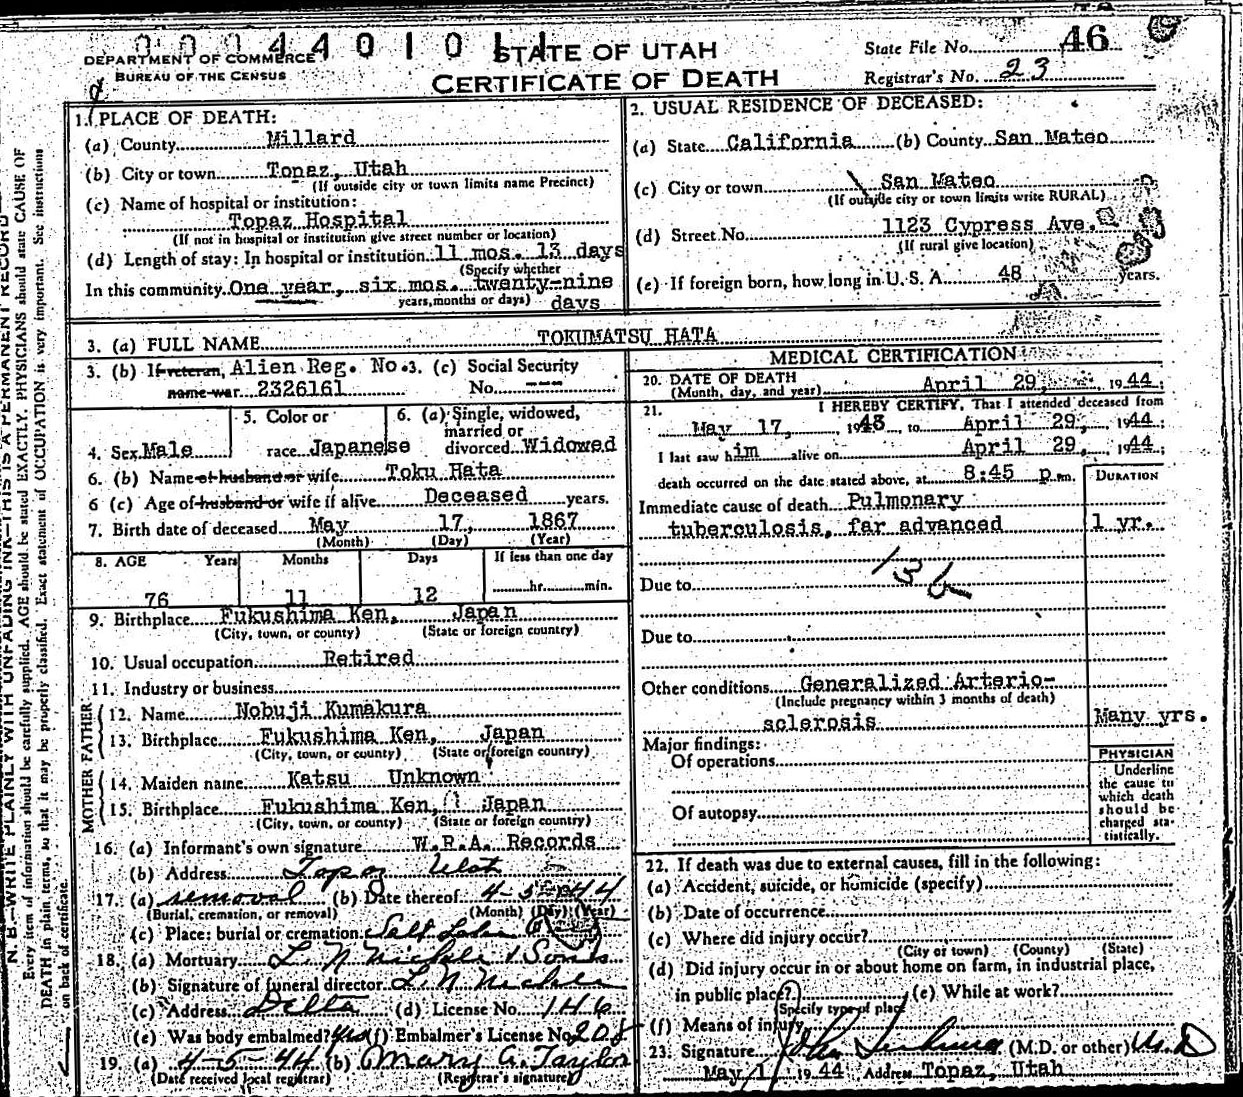 00044010 11 STATE OF UTAH
DEPARTMENT OF COMMERCE
BUREAU OF THE CENSUS
CERTIFICATE OF DEATH
State File No. 46
Registrar's No. 23
N. B.—WRITE PLAINLY WITH UNFADING INK—THIS IS A PERMANENT RECORD
Every item of information should be carefully supplied. AGE should be stated EXACTLY. PHYSICIANS should state CAUSE OF
DEATH in plain terms, so that it may be properly classified. Exact statement of OCCUPATION is very important. See instructions
on back of certificate.
1. PLACE OF DEATH:
(a) County Millard
(b) City or town Topaz, Utah
(If outside city or town limits name Precinct)
(c) Name of hospital or institution:
Topaz Hospital
(If not in hospital or institution give street number or location)
(d) Length of stay: In hospital or institution 11 mos. 13 days
(Specify whether
In this community One year, six mos. twenty-nine
years, months or days) days
2. USUAL RESIDENCE OF DECEASED:
(a) State California (b) County San Mateo
(c) City or town San Mateo
(If outside city or town limits write RURAL)
(d) Street No. 1123 Cypress Ave.
(If rural give location)
(e) If foreign born, how long in U. S. A. 48 years.
3. (a) FULL NAME TOKUMATSU HATA
3. (b) If veteran, Alien Reg. No. 3. (c) Social Security
name war 2326161 No. ---
4. Sex Male
5. Color or
race Japanese
6. (a) Single, widowed,
married or
divorced Widowed
6. (b) Name of husband or wife Toku Hata
6 (c) Age of husband or wife if alive Deceased years.
7. Birth date of deceased May 17, 1867
(Month) (Day) (Year)
8. AGE Years Months Days If less than one day
76 11 12 hr. min.
9. Birthplace Fukushima Ken, Japan
(City, town, or county) (State or foreign country)
10. Usual occupation Retired
11. Industry or business
FATHER
12. Name Nobuji Kumakura
13. Birthplace Fukushima Ken, Japan
(City, town, or county) (State or foreign country)
MOTHER
14. Maiden name Katsu Unknown
15. Birthplace Fukushima Ken, Japan
(City, town, or county) (State or foreign country)
16. (a) Informant's own signature W.R.A. Records
(b) Address Topaz Utah
17. (a) removal (b) Date thereof 4-5-44
(Burial, cremation, or removal) (Month) (Day) (Year)
(c) Place: burial or cremation Salt Lake
18. (a) Mortuary L. N Nickle & Sons
(b) Signature of funeral director L. N. Nickle
(c) Address Delta (d) License No. 146
(e) Was body embalmed? yes (f) Embalmer's License No. 208
19 (a) 4-5-44 (b) Mary A. Taylor
(Date received local registrar) (Registrar's signature)
MEDICAL CERTIFICATION
20. DATE OF DEATH
(Month, day, and year) April 29, 1944;
21. I HEREBY CERTIFY, That I attended deceased from
May 17, 1943, to April 29, 1944;
I last saw him alive on April 29, 1944;
death occurred on the date stated above, at 8:45 p.m.
DURATION
Immediate cause of death Pulmonary
tuberculosis, far advanced 1 yr.
13b
Due to
Due to
Other conditions Generalized Arterio-
(Include pregnancy within 3 months of death)
sclerosis Many yrs.
Major findings:
Of operations
Of autopsy
PHYSICIAN
Underline
the cause to
which death
should be
charged sta-
tistically.
22. If death was due to external causes, fill in the following:
(a) Accident, suicide, or homicide (specify)
(b) Date of occurrence
(c) Where did injury occur?
(City or town) (County) (State)
(d) Did injury occur in or about home on farm, in industrial place,
in public place? (e) While at work?
(Specify type of place)
(f) Means of injury
23. Signature John (M.D. or other) M.D
May 1, 1944 Address Topaz, Utah